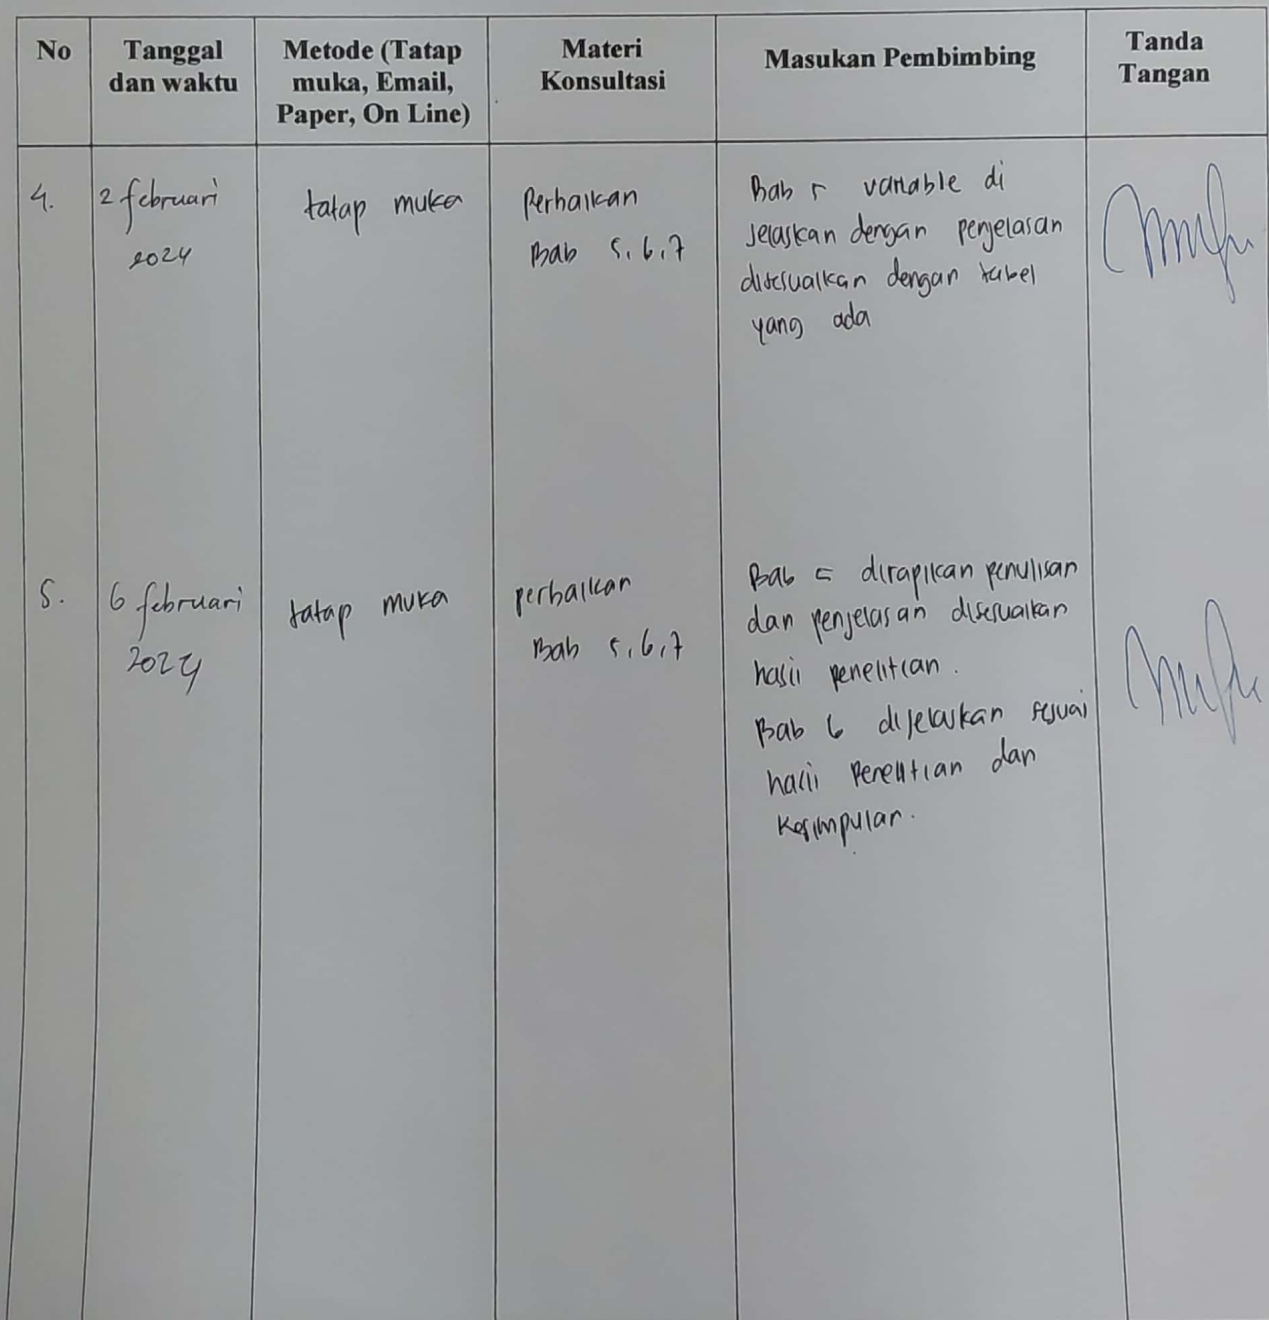 No
Tanggal
dan waktu
Metode (Tatap
muka, Email,
Paper, On Line)
Materi
Konsultasi
Masukan Pembimbing
Tanda
Tangan
4.
2 februari
2024
tatap muka
Perbaikan
Bab 5, 6, 7
Bab 5 variable di
jelaskan dengan penjelasan
disesuaikan dengan tabel
yang ada
5.
6 februari
2024
tatap muka
perbaikan
Bab 5, 6, 7
Bab 5 dirapikan penulisan
dan penjelasan disesuaikan
hasil penelitian.
Bab 6 dijelaskan sesuai
hasil Penelitian dan
Kesimpulan.